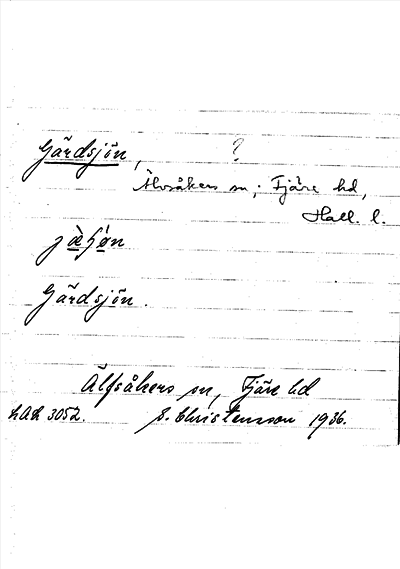 Gärdsjön, ?
Älvsåkers sn, Fjäre hd,
Hall. l.
Gärdsjön.
Älfsåkers sn, Fjäre hd
S. Christensson 1936.